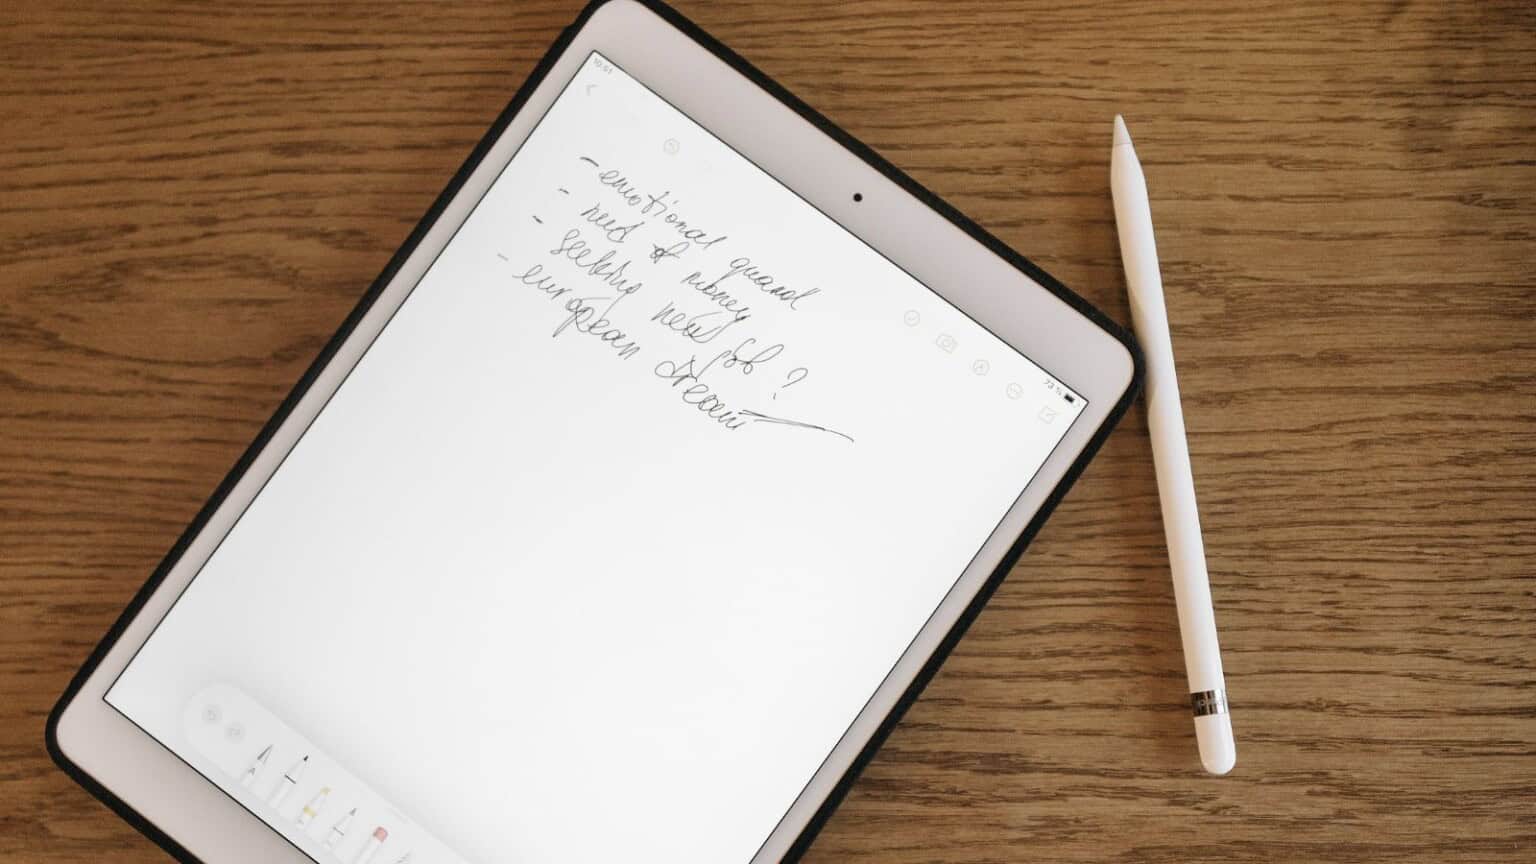 10:51
73 %
- emotional guard
- need of money
- seeking new job ?
- european dream